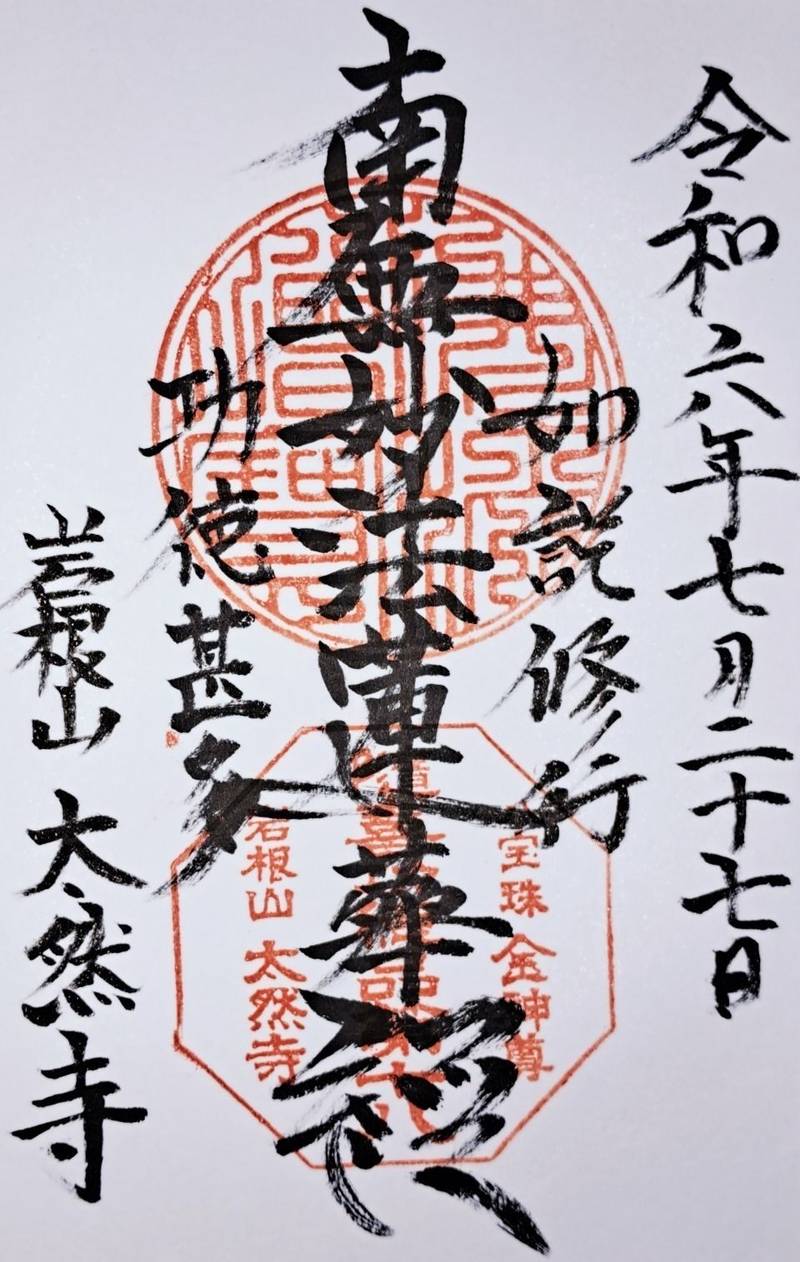 令和六年七月二十七日
如説修行
南無妙法蓮華経
功徳甚多
岩根山 太然寺
宝珠 金神尊
岩根山 太然寺